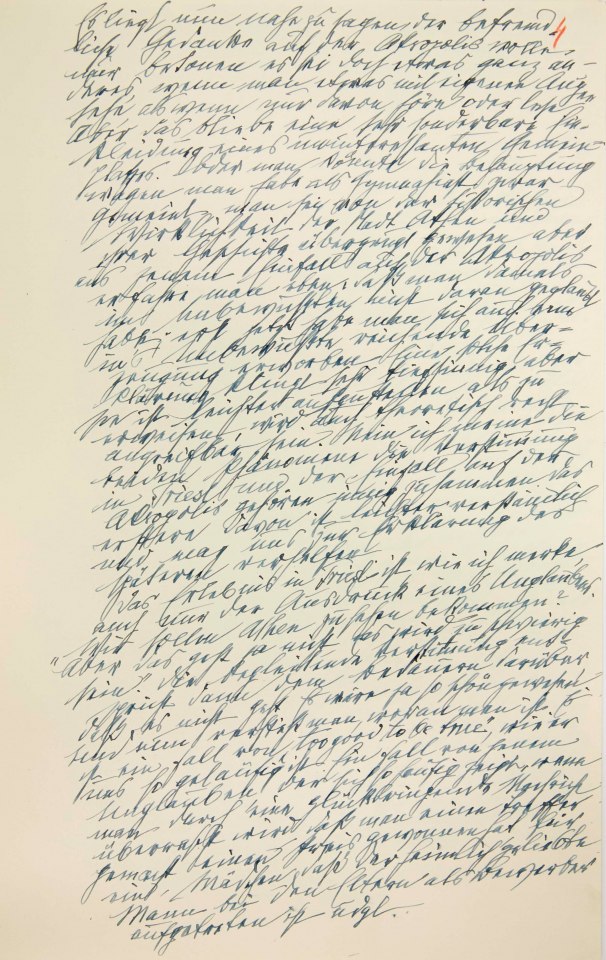 4
Es liegt nun nahe zu sagen, der befremd-
liche Gedanke auf der Akropolis wolle
nur betonen es sei doch etwas ganz an-
deres wenn man etwas mit eigenen Augen
sehe als wenn nur davon höre oder lese
Aber das bliebe eine sehr sonderbare Ein-
kleidung eines uninteressanten Gemein-
platzes. Oder man könnte die Behauptung
wagen man habe als Gymnasiast zwar
gemeint man sei von der historischen
Wirklichkeit der Stadt Athen und
ihrer Geschichte überzeugt gewesen aber
aus jenem Einfall auf der Akropolis
erfahre man eben, daß man damals
im Unbewußten nicht daran geglaubt
habe; erst jetzt habe man sich auch eine
ins Unbewußte reichende Über-
zeugung erworben. Eine solche Er-
klärung klingt sehr tiefsinnig aber
sie ist leichter aufzustellen als zu
erweisen, wird auch theoretisch recht
angreifbar sein. Nein ich meine die
beiden Phänomene die Verstimmung
in Triest und der Einfall auf der
Akropolis gehören innig zusammen. Das
erstere davon ist leichter verständlich
und mag uns zur Erklärung des
späteren verhelfen
Das Erlebnis in Triest ist wie ich merke,
auch nur der Ausdruck eines Unglaubens.
"Wir sollen Athen zu sehen bekommen?
Aber das geht ja nicht es wird zu schwierig
sein." Die begleitende Verstimmung ent-
spricht dann dem Bedauern darüber
daß es nicht geht Es wäre ja so schön gewesen
Und nun versteht man woran man ist. Es
ist ein Fall von "too good to be true", wie er
uns so geläufig ist. Ein Fall von jenem
Unglauben der sich so häufig zeigt, wenn
man durch eine glückbringende Nachricht
überrascht wird, daß man einen Treffer
gemacht einen Preis gewonnen hat für
ein Mädchen, daß der heimlich geliebte
Mann bei den Eltern als Bewerber
aufgetreten ist udgl.